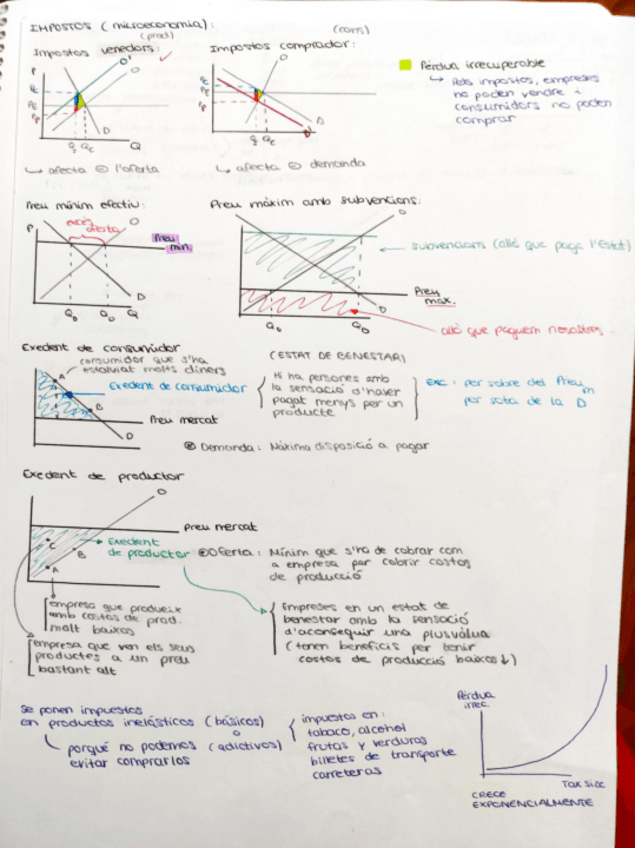 IMPOSTOS (microeconomia):
(prod)
(cons)
Impostos venedors:
Impostos comprador:
Pèrdua irrecuperable
↳ Pels impostos, empreses
no poden vendre i
consumidors no poden
comprar
P
O'
O
Pc
PE
Pp
D
Qc Q
O
Pc
PE
Pp
D
D'
↳ afecta ⊖ l'oferta
↳ afecta ⊖ demanda
Preu mínim efectiu:
Preu màxim amb subvencions:
excés
oferta
P
O
Preu
min.
D
QD QO Q
O
← subvencions (allò que paga l'Estat)
Preu
max.
D
QO QD
allò que paguem nosaltres
Exedent de consumidor
consumidor que s'ha
estalviat molts diners
A
Exedent de consumidor
B
Preu mercat
D
(ESTAT DE BENESTAR)
Hi ha persones amb
la sensació d'haver
pagat menys per un
producte
Exc: per sobre del Preu m
per sota de la D
Demanda: Màxima disposició a pagar
Exedent de productor
O
Preu mercat
Exedent
de productor
C
B
A
Oferta: Mínim que s'ha de cobrar com
a empresa per cobrir costos
de producció
empresa que produeix
amb costos de prod.
molt baixos
empresa que ven els seus
productes a un preu
bastant alt
Empreses en un estat de
benestar amb la sensació
d'aconseguir una plusvàlua
(tenen beneficis per tenir
costos de producció baixos↓)
Se ponen impuestos
en productos inelásticos (básicos)
o
porqué no podemos (adictivos)
evitar comprarlos
impuestos en:
tabaco, alcohol
frutas y verduras
billetes de transporte
carreteras
Pèrdua
irrec.
Tax size
CRECE
EXPONENCIALMENTE